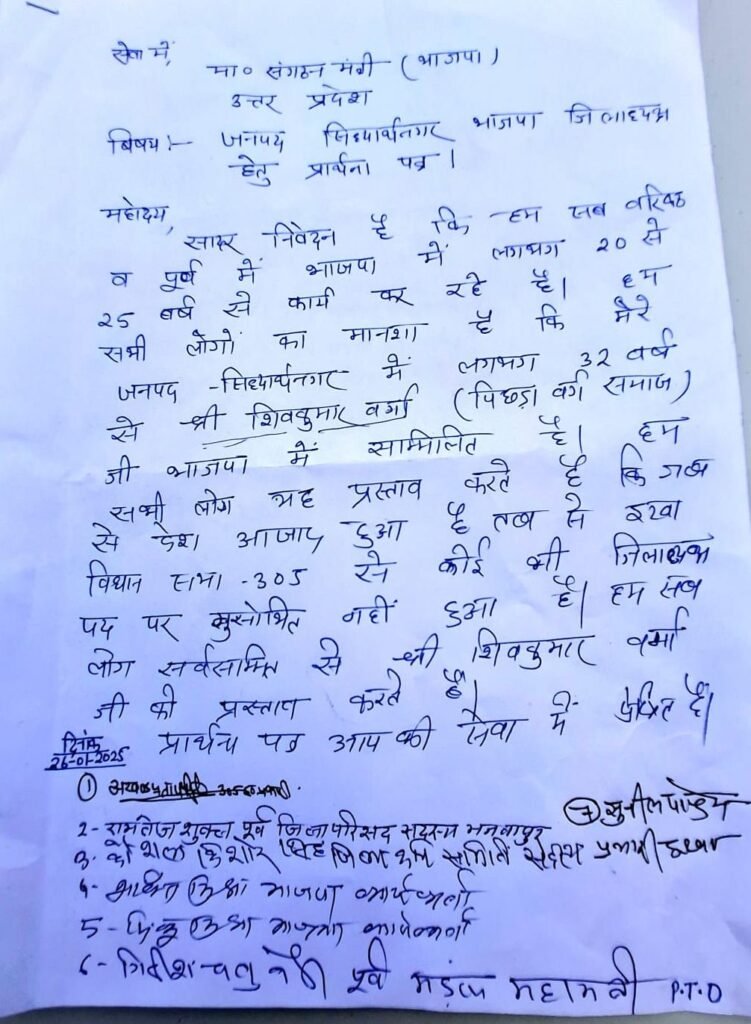 सेवा में,
मा० संगठन मंत्री (भाजपा)
उत्तर प्रदेश
बिषय :- जनपद सिद्धार्थनगर भाजपा जिलाध्यक्ष
हेतु प्रार्थना पत्र।
महोदय,
सादर निवेदन है कि हम सब वरिष्ठ
व पूर्व में भाजपा में लगभग 20 से
25 बर्ष से कार्य कर रहे है। हम
सभी लोगों का मानशा है कि मेरे
जनपद -सिद्धार्थनगर में लगभग 32 वर्ष
से श्री शिवकुमार वर्मा (पिछड़ा वर्ग समाज)
जी भाजपा में साम्मिलित है। हम
सभी लोग यह प्रस्ताव करते है कि जब
से देश आजाद हुआ है तब से इटवा
विधान सभा -305 से कोई भी जिलाध्यक्ष
पद पर सुसोभित नहीं हुआ है। हम सब
लोग सर्वसम्मित से श्री शिवकुमार वर्मा
जी को प्रस्ताव करते है।
प्रार्थना पत्र आप की सेवा में प्रेषित है।
दिनांक
26-01-2025
①
⑦ सुनील पाण्डेय
2- रामतेज शुक्ल पूर्व जिला परिसद सदस्य भनवापुर
3- कौशल किशोर सिंह जिला कृषि समिति सदस्य प्रभारी इटवा
4- मिश्रा भाजपा कार्यकर्ता
5- मिश्रा भाजपा कार्यकर्ता
6- गिरीश पूर्व मंडल महामंत्री P.T.O